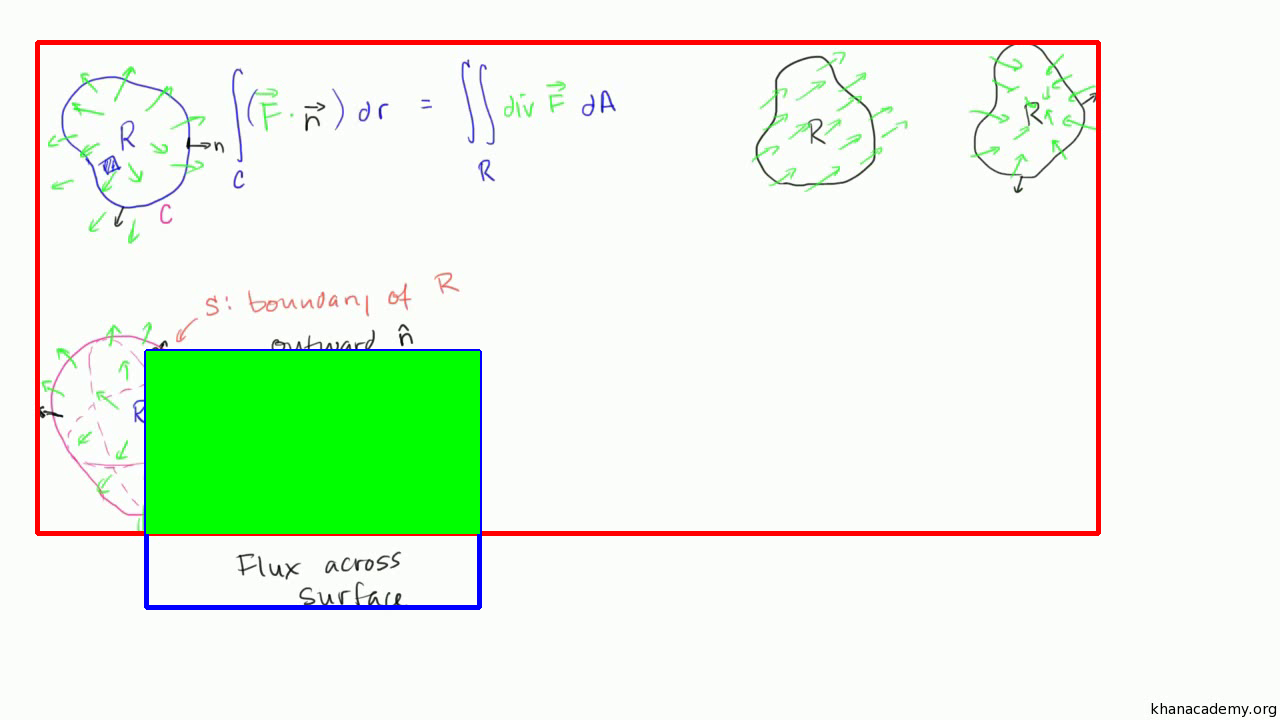 R
n
C
∫_C (F⃗ · n⃗) dr = ∬_R div F⃗ dA
R
R
S: boundary of R
outward n̂
R
Flux across
surface
khanacademy.org